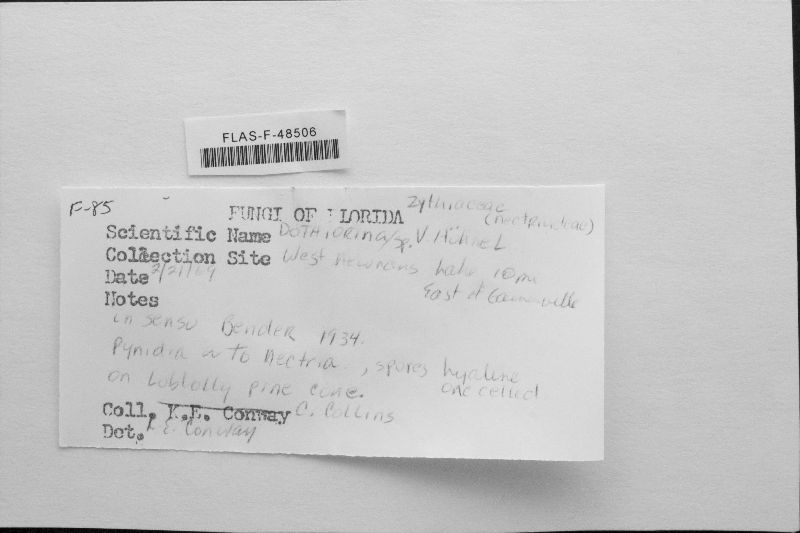 FLAS-F-48506
F-85
Zythiaceae
(nectrioideae)
FUNGI OF FLORIDA
Scientific Name DOTHIORINA/sp. V. Höhnel
Collection Site West Newnans Lake 10 mi
East of Gainesville
Date 2/21/69
Notes
in sensu Bender 1934.
Pynidia ~ to Nectria, spores hyaline
one celled
on Loblolly pine cone.
Coll. K.E. Conway C. Collins
Det. K E. Conway